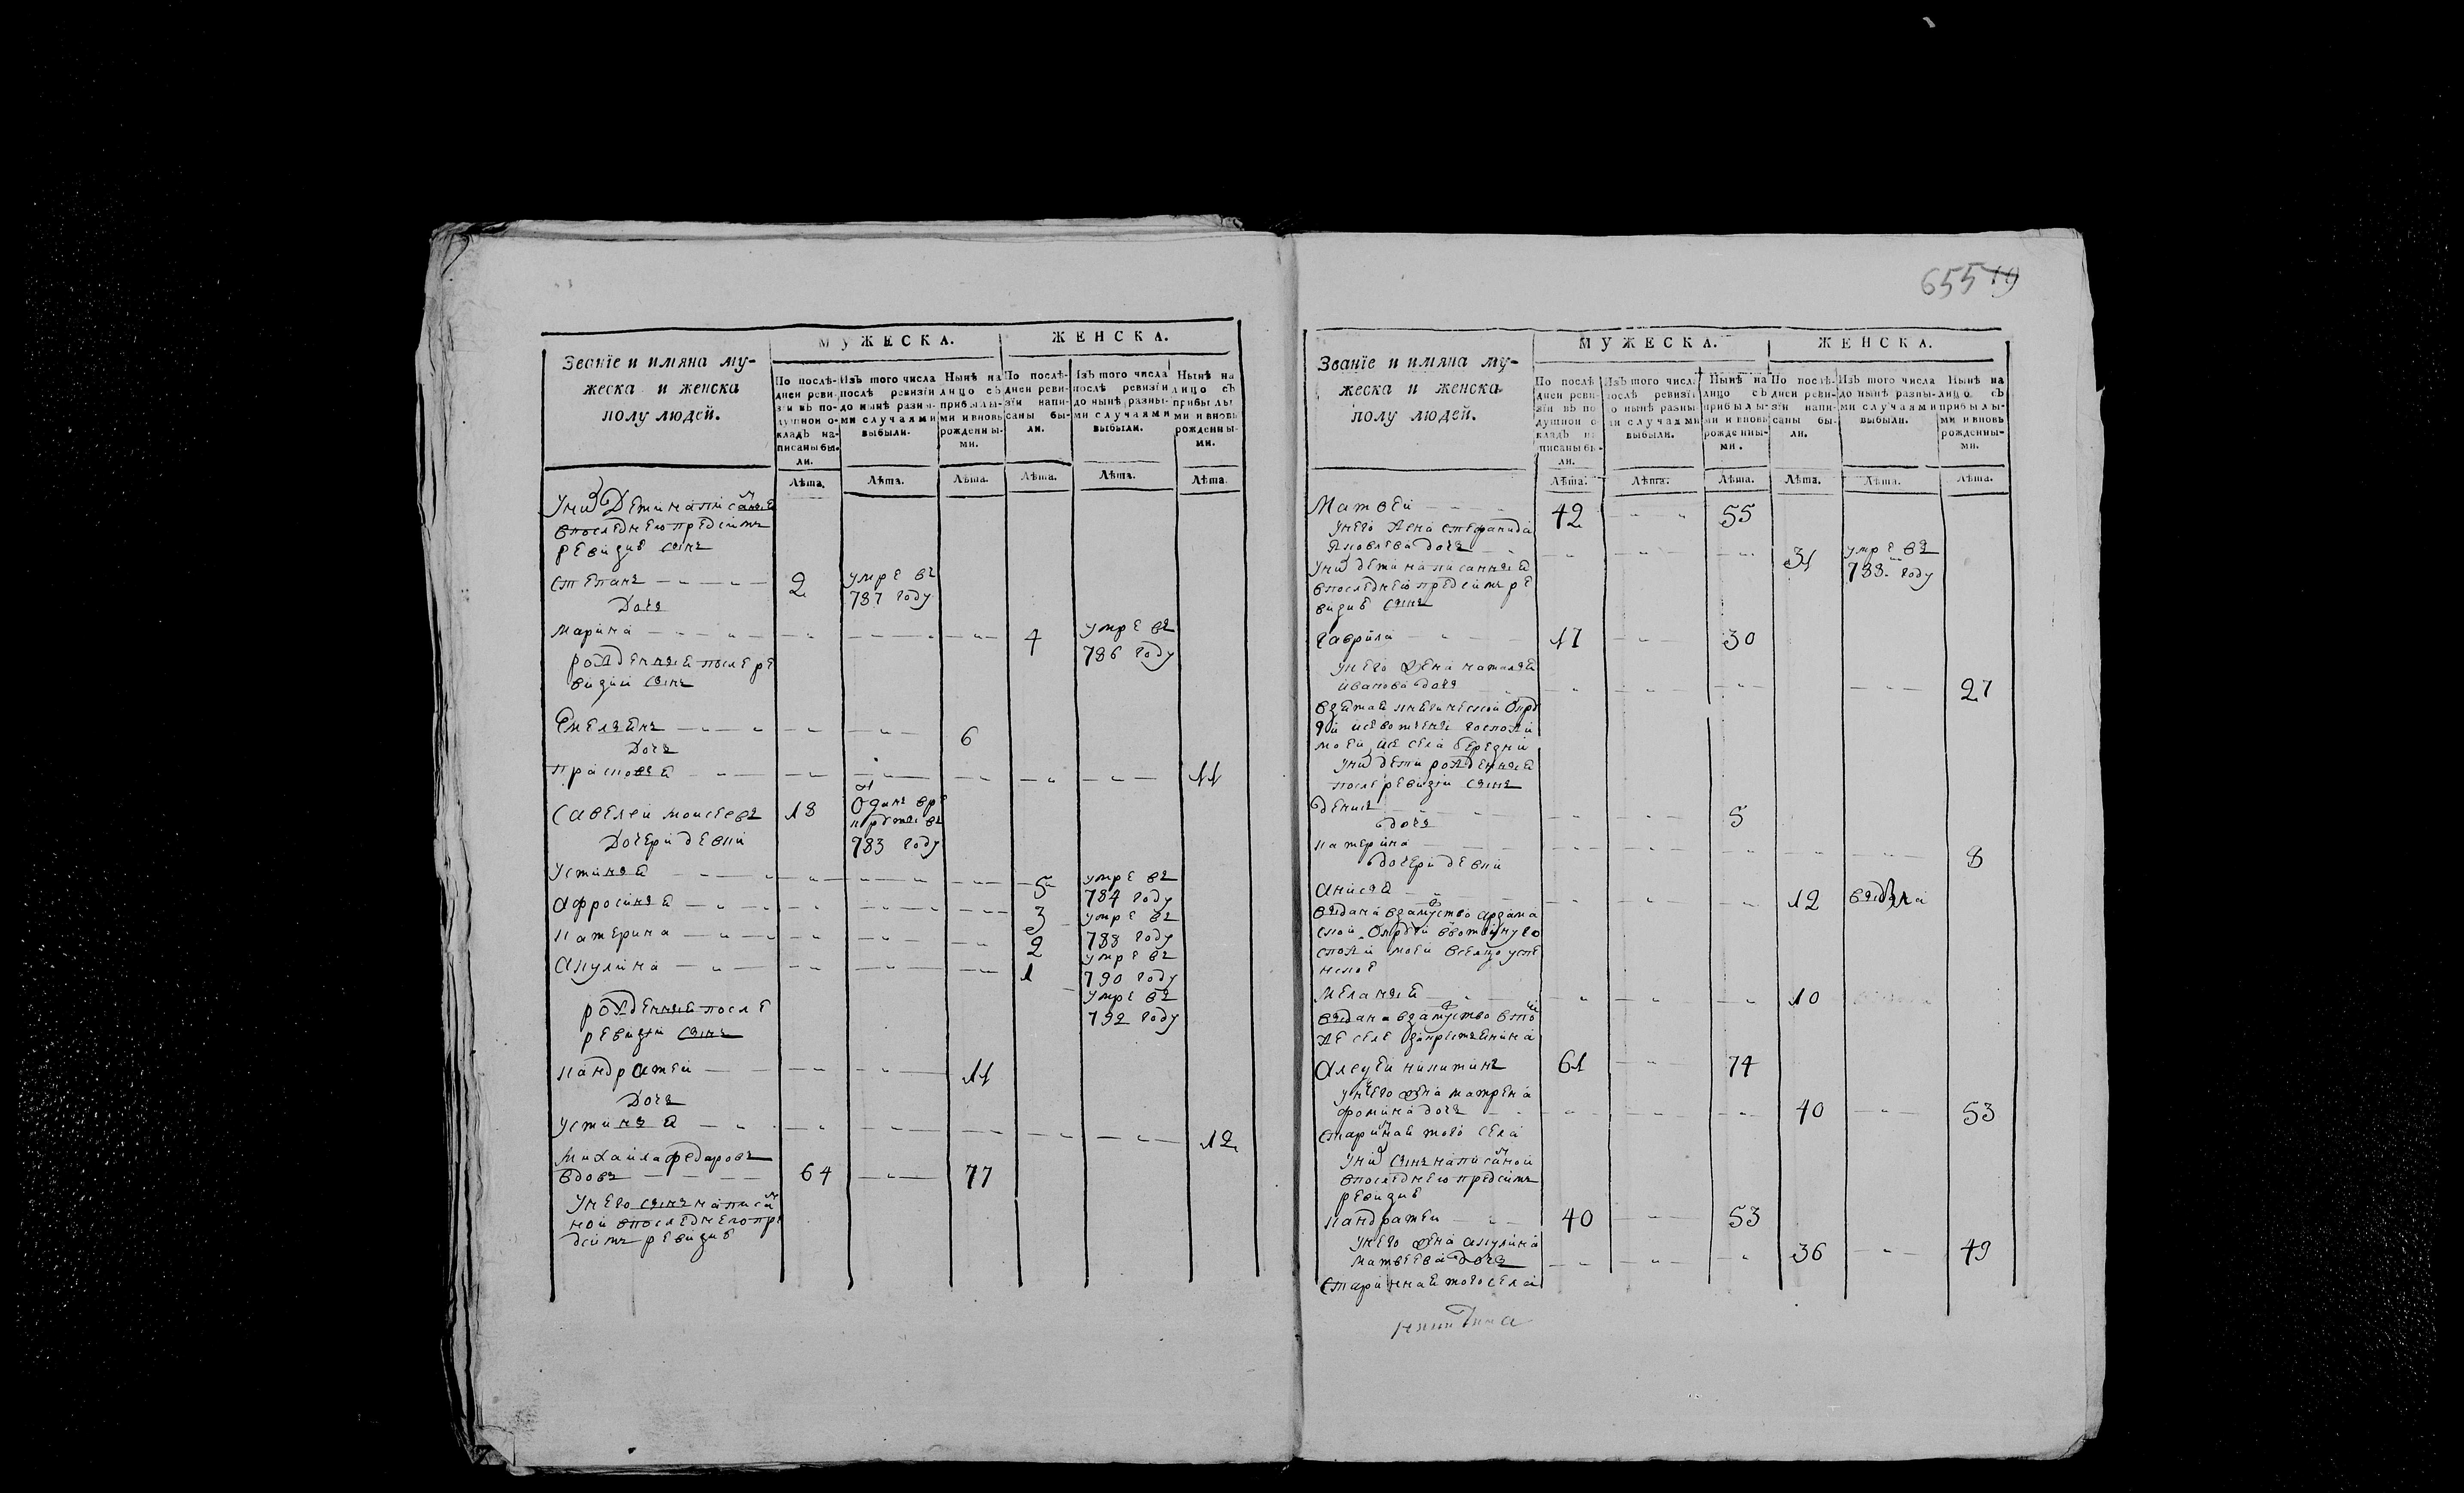 655 19
Званїе и имяна му-
жеска и женска
полу людей.
МУЖЕСКА.
ЖЕНСКА.
По послѣ-
дней реви-
зїи въ по-
душной о-
кладъ на-
писаны бы-
ли.
Изъ того числа
послѣ ревизїи
до нынѣ разны-
ми случаями
выбыли.
Нынѣ на
лицо съ
прибылы-
ми и вновь
рожденны-
ми.
По послѣ-
дней реви-
зїи напи-
саны бы-
ли.
Изъ того числа
послѣ ревизїи
до нынѣ разны-
ми случаями
выбыли.
Нынѣ на
лицо съ
прибылы-
ми и вновь
рожденны-
ми.
Лѣта. Лѣта. Лѣта. Лѣта. Лѣта. Лѣта.
У них дети написаные
впоследнею предсимъ
ревизие сынъ
степанъ 2 умре въ
787 году
дочь
марина 4 умре въ
786 году
рожденные после ре
визии сынъ
Емельянъ 6
дочь
прасковья 11
савелей моисеевъ 18
783 году
дочери девки
устинья 5 умре въ
784 году
афросинья 3 умре въ
788 году
катерина 2 умре въ
790 году
акулина 1 умре въ
792 году
рожденные после
ревизии сынъ
кандратей 11
дочь
устинья 12
михайла федаровъ
вдовъ 64 77
У него сынъ написа
ной впоследнею пре
дсимъ ревизие
Званїе и имяна му-
жеска и женска
полу людей.
МУЖЕСКА.
ЖЕНСКА.
По послѣ-
дней реви-
зїи въ по
душной о
кладъ на
писаны бы-
ли.
Изъ того числа
послѣ ревизїи
до нынѣ разны
ми случаями
выбыли.
Нынѣ на
лицо съ
прибылы-
ми и вновь
рожденны-
ми.
По послѣ-
дней реви-
зїи напи-
саны бы-
ли.
Изъ того числа
до нынѣ разны-
ми случаями
выбыли.
Нынѣ на
лицо съ
прибылы-
ми и вновь
рожденны-
ми.
Лѣта. Лѣта. Лѣта. Лѣта. Лѣта. Лѣта.
Матвей 42 55
У него жена степанида
яковлева дочь 31 умре въ
788 году
У них дети написанные
впоследнею предсимъ ре
визие сынъ
гаврила 17 30
У него жена наталья
иванова дочь 27
взятая
госпожи
моей из села
У них дети рожденные
после ревизии сынъ
денисъ 5
дочь
катерина 8
дочери девки
анисья 12 выдана
выдана взамужство арзама
ской вотчину го
спожи моей
меланья 10
выдана взамужство втом
же селе закрестьянина
алексей никитинъ 61 74
У него жена матрена
фомина дочь 40 53
старинная того села
У них сынъ написаной
впоследнею предсимъ
ревизие
кандратей 40 53
У него жена акулина
матвеева дочь 36 49
старинная того села